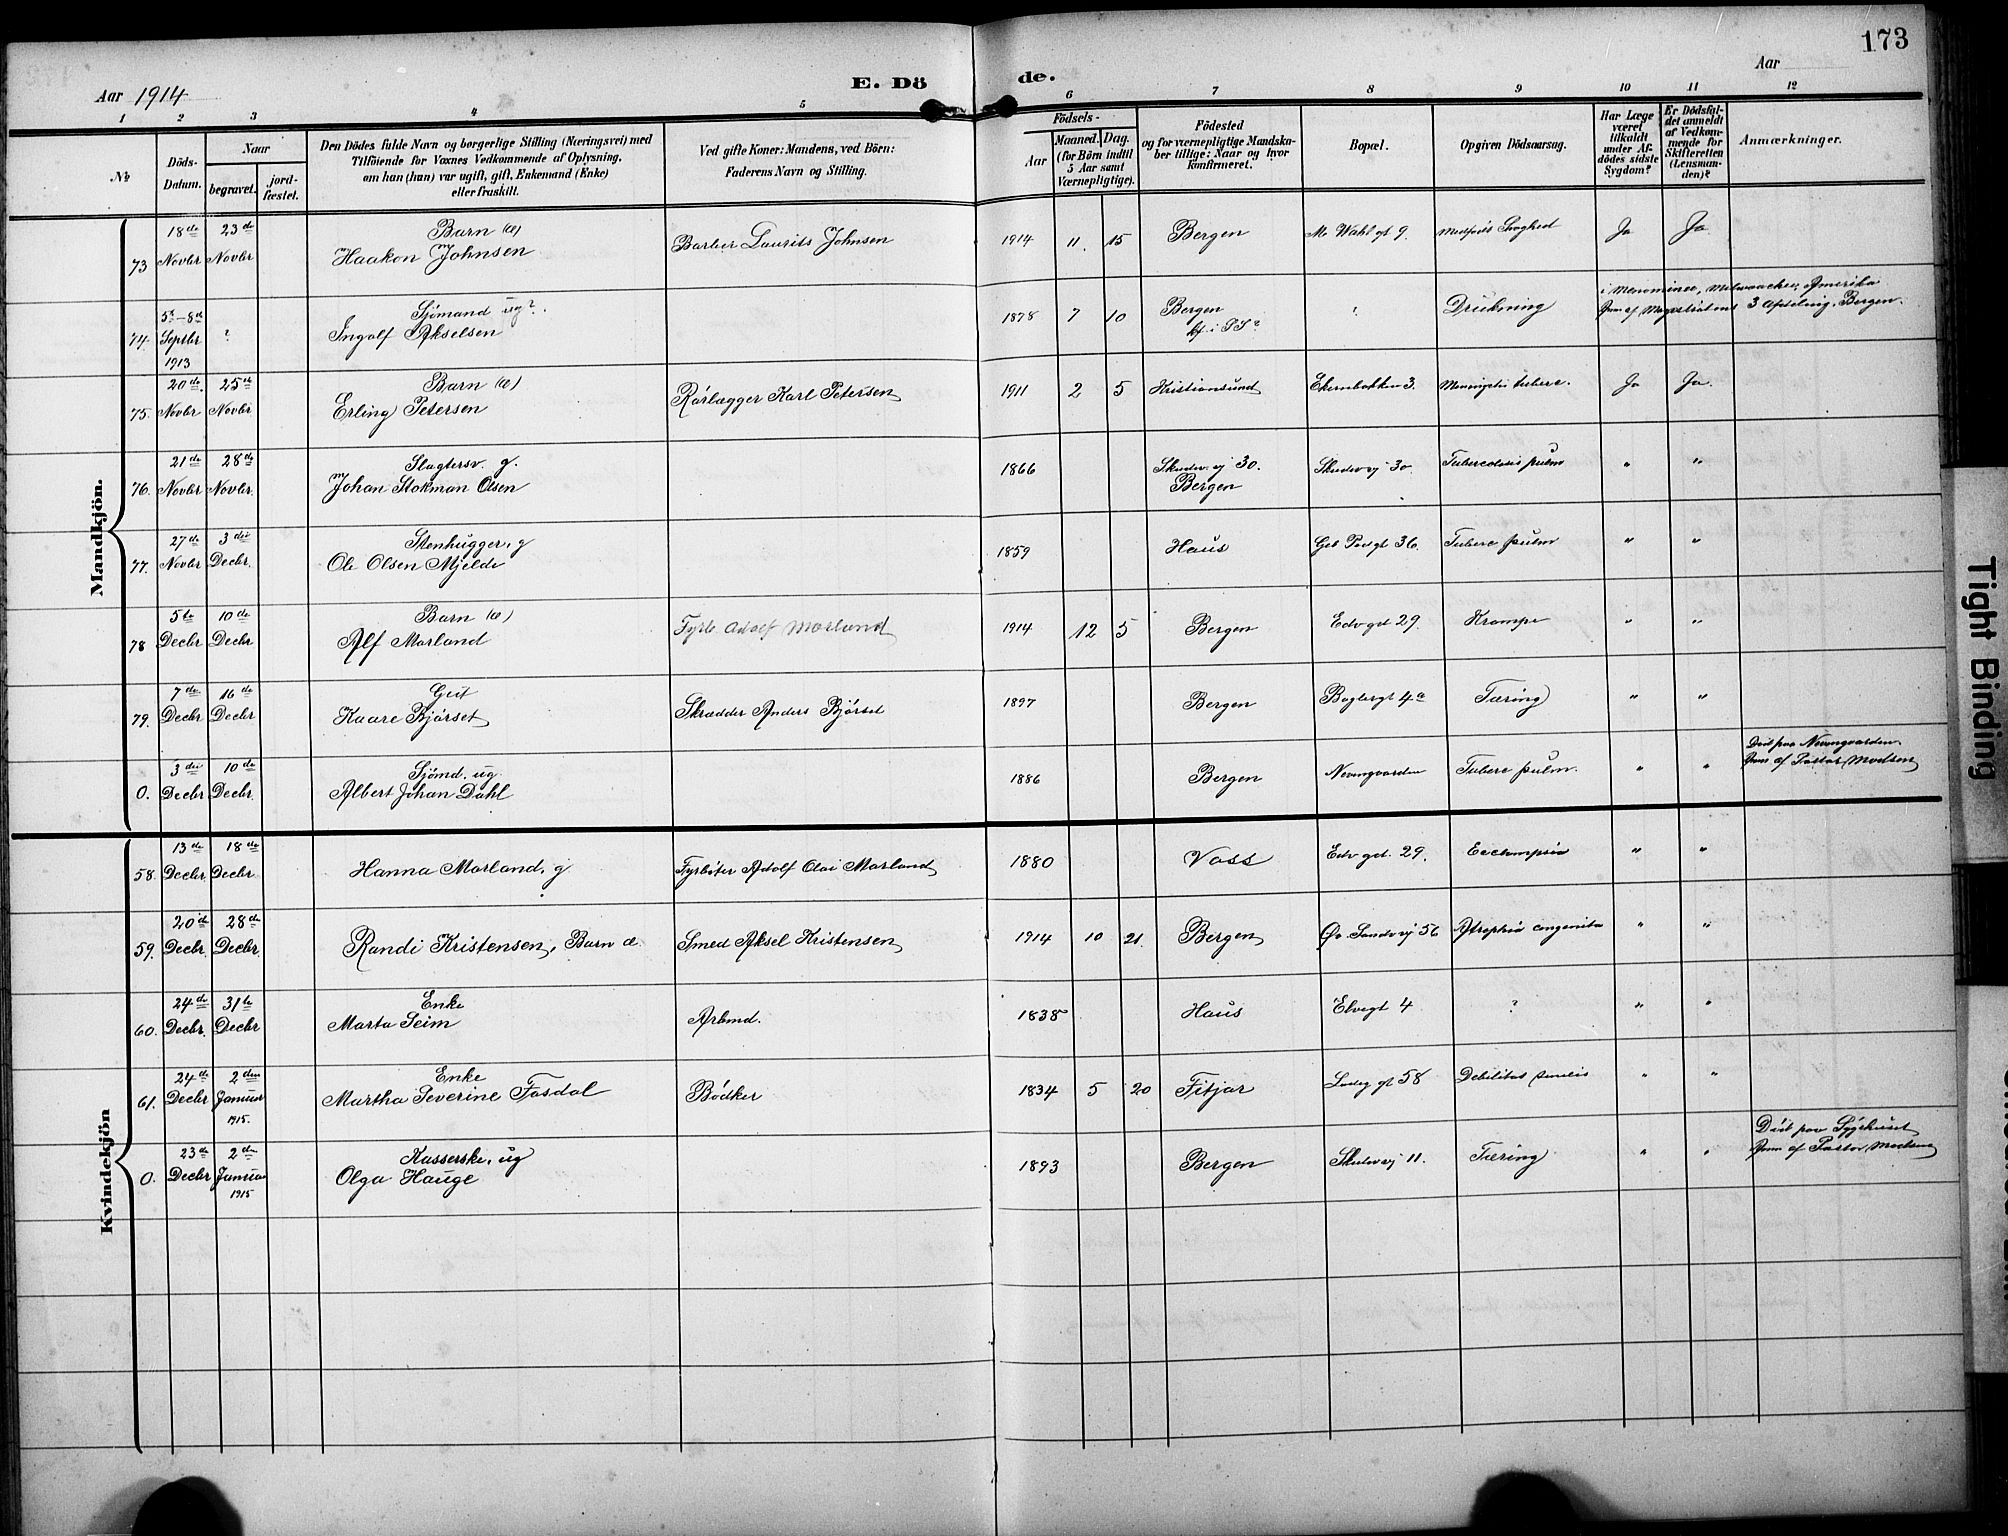 173
Aar 1914
E. Dö
de.
Aar
1 2 3 4 5 6 7 8 9 10 11 12
№
Döds-
Datum.
Naar
begravet.
jord-
fæstet.
Den Dödes fulde Navn og borgerlige Stilling (Næringsvei) med
Tilföiende for Voxnes Vedkommende af Oplysning,
om han (hun) var ugift, gift, Enkemand (Enke)
eller fraskilt.
Ved gifte Koner: Mandens, ved Börn:
Faderens Navn og Stilling.
Födsels-
Aar
Maaned. Dag.
(for Börn indtil
5 Aar samt
Værnepligtige).
Födested
og for værnepligtige Mandska-
ber tillige: Naar og hvor
konfirmeret.
Bopæl.
Opgiven Dödsaarsag.
Har Læge
været
tilkaldt
under Af-
dödes sidste
Sygdom?
Er Dödsfal-
det anmeldt
af Vedkom-
mende for
Skifteretten
(Lensman-
den)?
Anmærkninger.
Mandkjön.
18de 23de Barn (æ)
73 Novbr Novbr Haakon Johnsen Barber Laurits Johnsen 1914 11 15 Bergen M. Wahl gt 9. Medfödt Svaghed Ja Ja
5te-8de Sjømand ug?
74. Septbr ? Ingolf Akselsen 1878 7 10 Bergen ? Drukning i Menominee, Milwauckee, Amerika
1913 kf. i ? 3 Afdeling, Bergen.
20de 25de Barn (æ)
75. Novbr Novbr Erling Petersen Rørlægger Karl Petersen 1911 2 5 Kristiansund Ekernbakken 3. tuberc. Ja Ja
21de 28de Slagtersv. g.
76. Novbr Novbr. Johan Stokman Olsen 1866 Skudev.vj 30. Bergen Skudevvj 30 Tuberculosis pulm " "
27de 3die Stenhugger, g
77. Novbr Decbr. Ole Olsen Mjelde 1859 Haus gt 36. Tuberc pulm " "
5te 10de Barn (æ)
78 Decbr Decbr. Alf Morland Fyrb. Adolf Morland 1914 12 5 Bergen Edv gt 29. Krampe " "
7de 16de Gut
79. Decbr Decbr Kaare Bjørset Skrædder Anders Bjørset 1897 Bergen gt 4a Tæring " "
3die 10de Sjømd. ug
0. Decbr Decbr. Albert Johan Dahl 1886 Bergen Nevengaarden Tuberc pulm. " " Död paa Nevengaarden
Anm af Pastor Madsen
Kvindekjön
13de 18de
58. Decbr. Decbr. Hanna Morland, g Fyrböter Adolf Olai Morland 1880 Voss Edv gt. 29. Ecclampsia " "
20de 28de
59. Decbr. Decbr. Randi Kristensen, Barn æ Smed Aksel Kristensen 1914 10 21. Bergen Øv. Sandvvj 56 Atrophia congenita " "
24de 31te Enke
60. Decbr. Decbr Marta Seim Arbmd. 1838 Haus Elvegt 4 ? " "
24de 2den Enke
61. Decbr Januar Martha Severine Fosdal Bødker 1834 5 20 Fitjar Ladeg gt 58 Debilitas senilis " "
1915.
23de 2den Kasserske, ug
0. Decbr Januar Olga Hauge 1893 Bergen Skudevvj 11. Tæring " " Död paa Sygehuset
1915 Anm af Pastor Madsen
Tight Binding